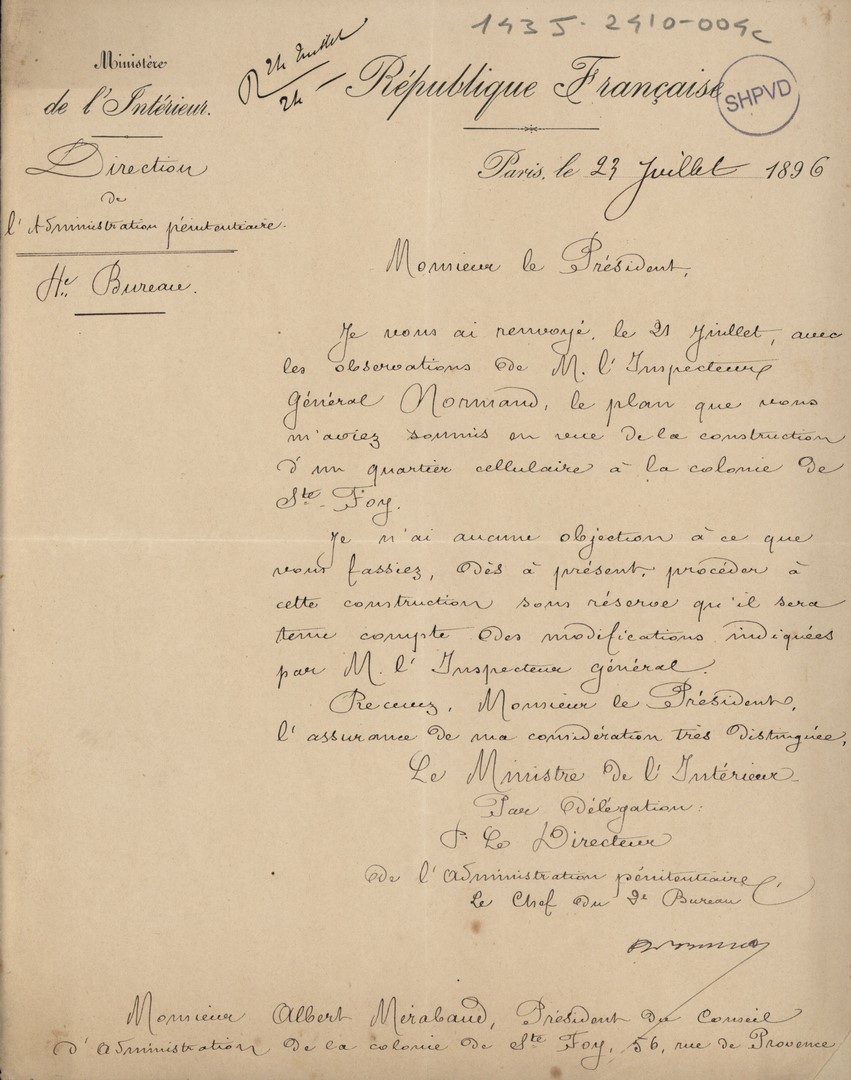 1935-2910-009c
Ministère
de l'Intérieur.
R 24 Juillet
24
République Française
SHPVD
Direction
de
l'Administration pénitentiaire.
Paris, le 23 Juillet 1896
Bureau.
Monsieur le Président,
Je vous ai renvoyé, le 21 Juillet, avec
les observations de M. l'Inspecteur
Général Normand, le plan que vous
m'aviez soumis en vue de la construction
d'un quartier cellulaire à la colonie de
Ste-Foy.
Je n'ai aucune objection à ce que
vous fassiez, dès à présent, procéder à
cette construction sous réserve qu'il sera
tenu compte des modifications indiquées
par M. l'Inspecteur général.
Recevez, Monsieur le Président,
l'assurance de ma considération très distinguée,
Le Ministre de l'Intérieur
Par délégation:
P. Le Directeur
de l'Administration pénitentiaire,
Le Chef du 2e Bureau
Monsieur Albert Mirabaud, Président du Conseil
d'Administration de la colonie de Ste Foy, 56, rue de Provence